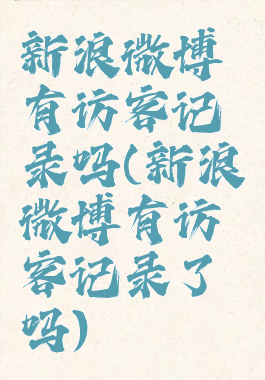 新浪微博
有访客记
录吗(新浪
微博有访
客记录了
吗)